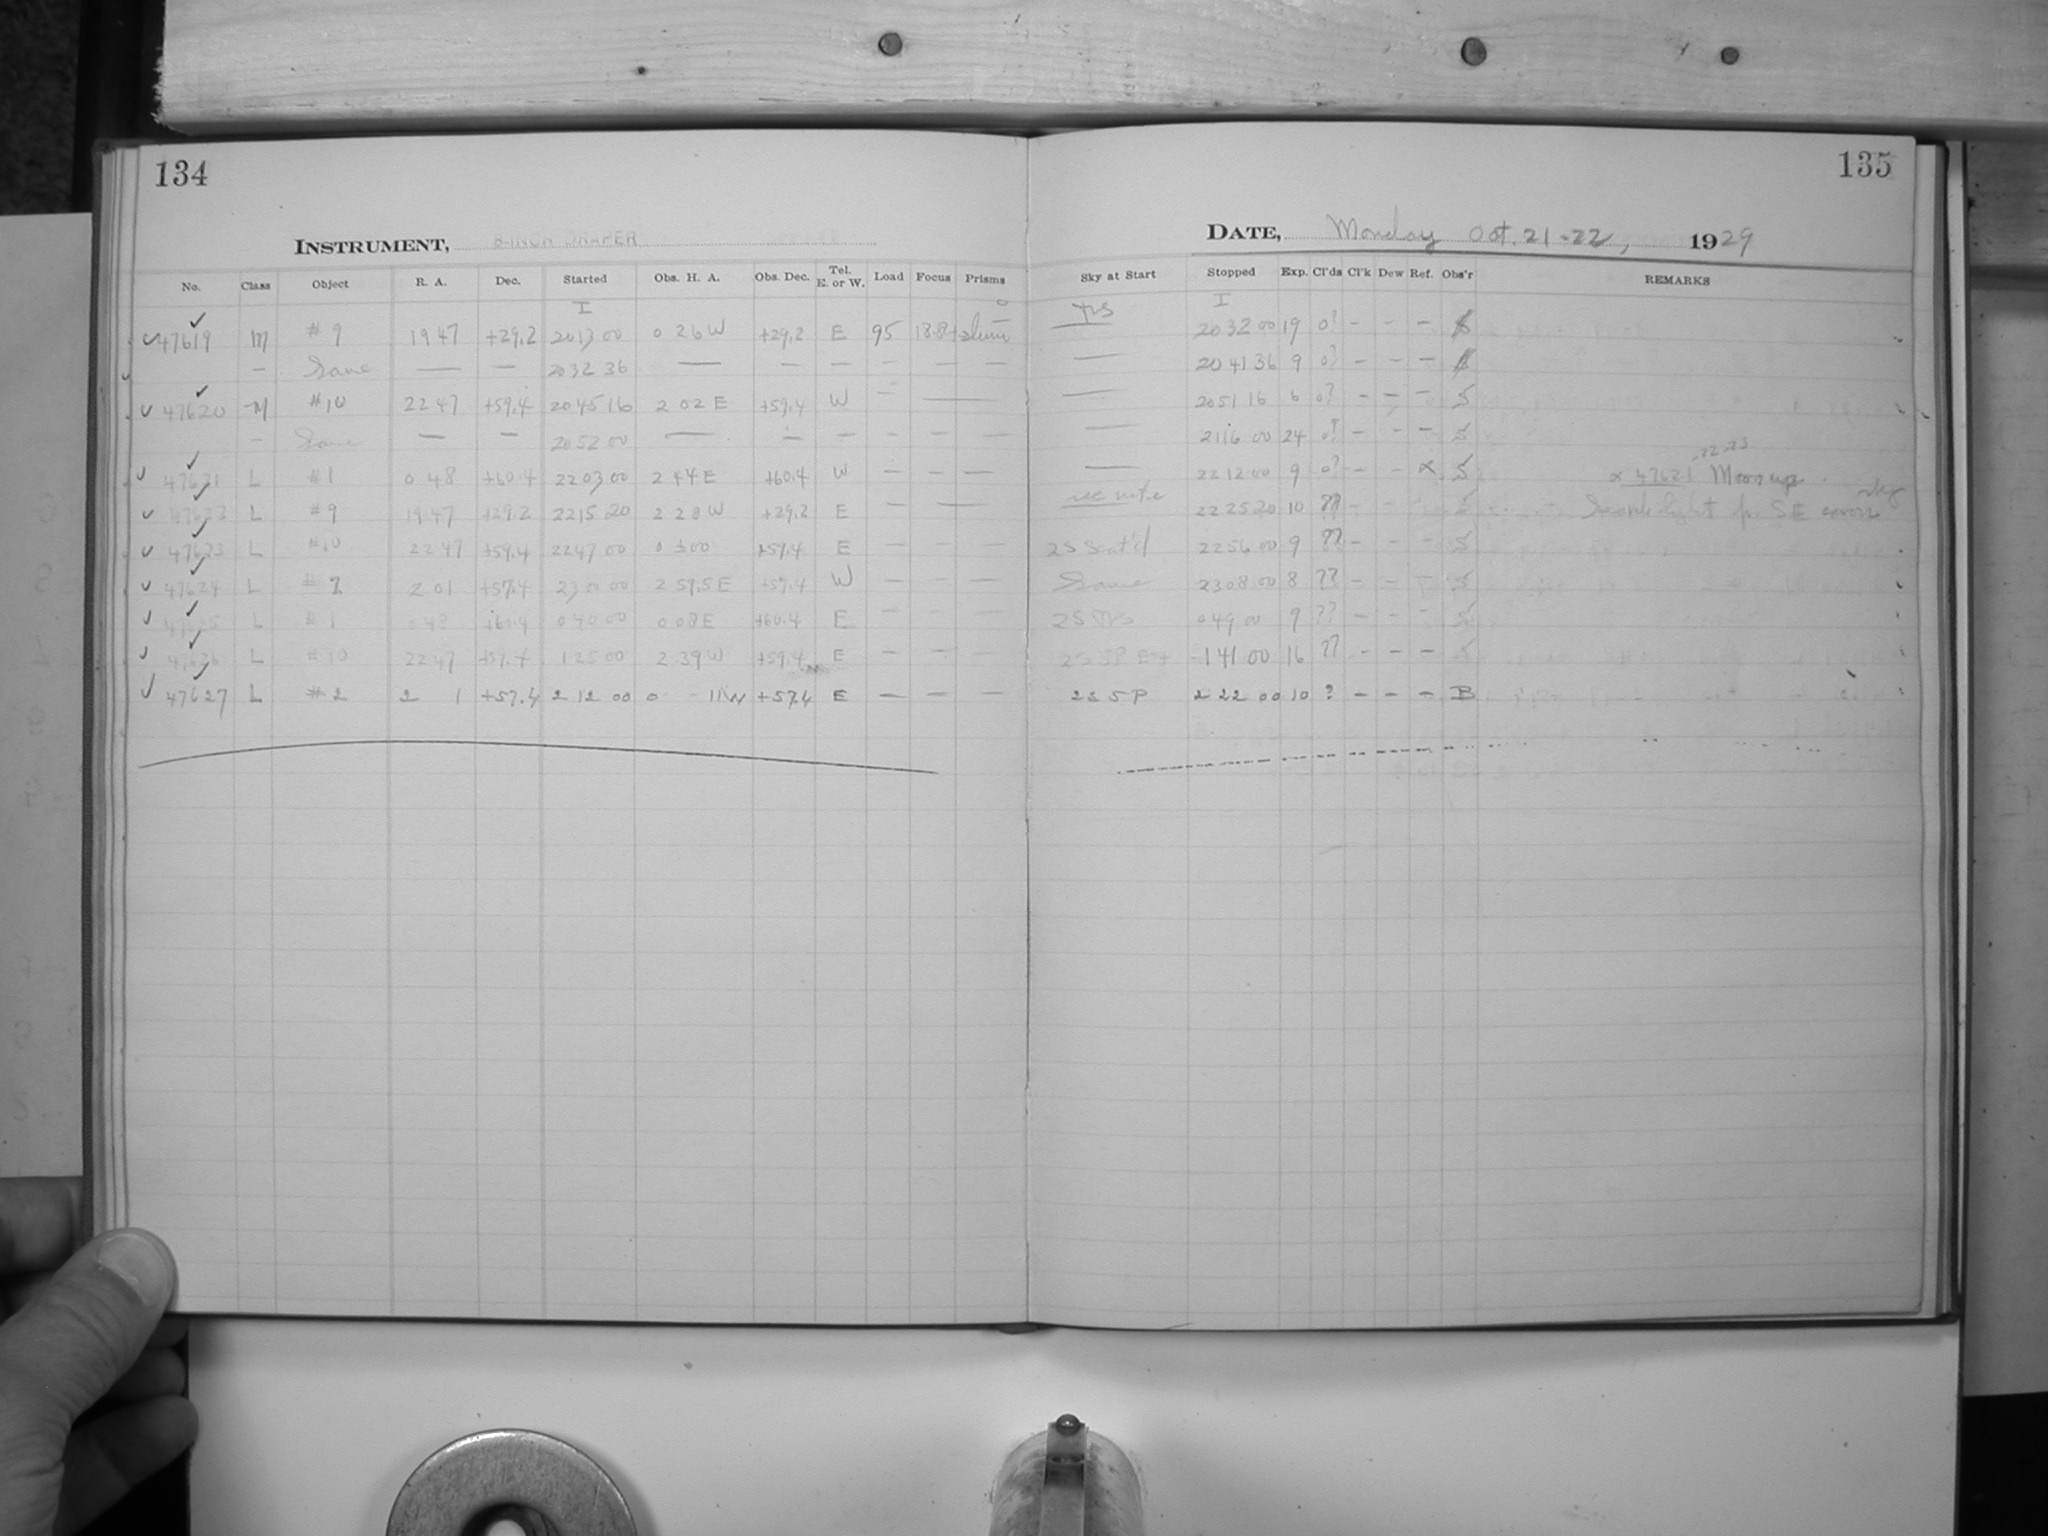 134
INSTRUMENT, 8-INCH DRAPER
No. Class Object R. A. Dec. Started Obs. H. A. Obs. Dec. Tel. E. or W. Load Focus Prisms
I
47619 M #9 19 47 +29.2 20 13 00 0 26 W +29.2 E 95
— Same — — 20 32 36 — — — — — —
47620 M #10 22 47 +59.4 20 45 16 2 02 E +59.4 W — —
— Same — — 20 52 00 — — — — — —
47621 L #1 0 48 +60.4 22 03 00 2 44 E +60.4 W — — —
L #9 19 47 +29.2 22 15 20 2 28 W +29.2 E — —
47623 L #10 22 47 +59.4 22 47 00 +59.4 E — — —
47624 L 2 01 +57.4 23 00 00 2 59.5 E +57.4 W — — —
L #1 0 48 +60.4 0 40 00 0 08 E +60.4 E — — —
L #10 22 47 1 25 00 2 39 W +59.4 E — — —
47627 L #2 2 1 +57.4 2 12 00 0 11 W +57.4 E — — —
135
DATE, Monday Oct. 21-22, 1929
Sky at Start Stopped Exp. Cl'ds Cl'k Dew Ref. Obs'r REMARKS
I
20 32 00 19 0? — — —
— 20 41 36 9 0? — — —
— 20 51 16 6 0? — — — S
— 21 16 00 24 0? — — — S
22-23
— 22 12 00 9 0? — — ∝ S ∝ 47621 Moon up
see note 22 25 20 10 ?? — — S
2S Scat'd 22 56 00 9 ?? — — — S
Same 23 08 00 8 ?? — — S
0 49 00 9 ?? — — — S
1 41 00 16 ?? — — —
2S 5P 2 22 00 10 ? — — — B